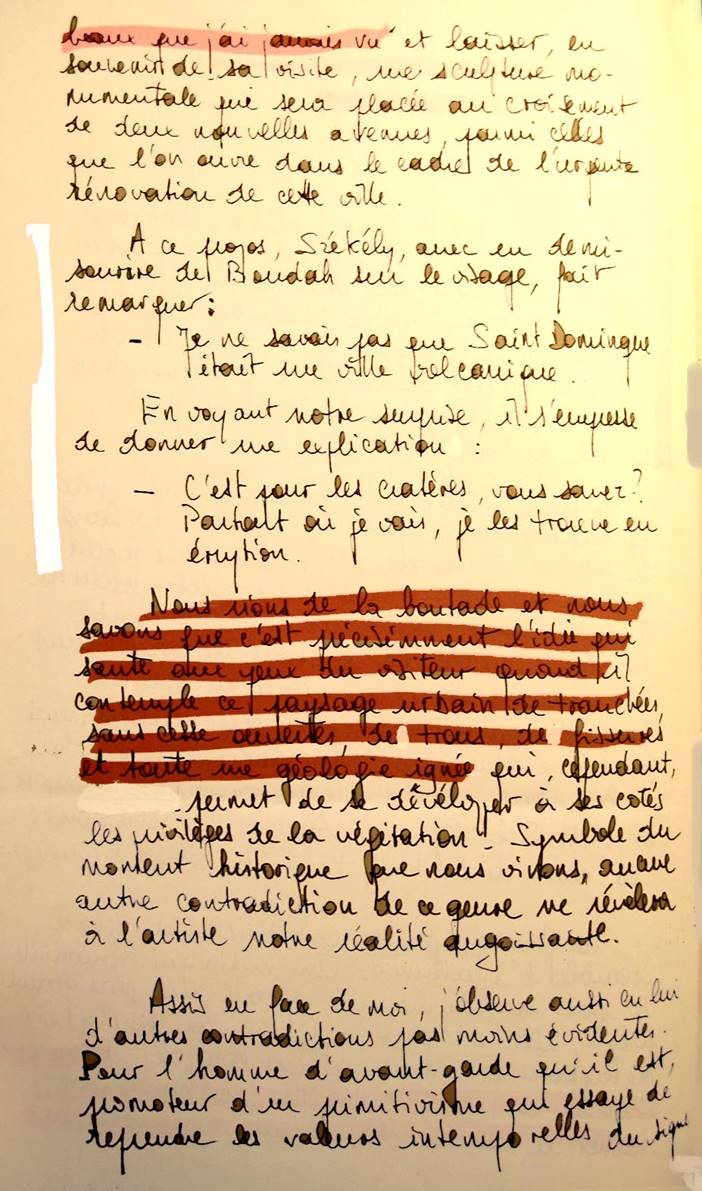 beaux que j'ai jamais vu" et laisser, en
souvenir de sa visite, une sculpture mo-
numentale qui sera placée au croisement
de deux nouvelles avenues, parmi celles
que l'on ouvre dans le cadre de l'urgente
rénovation de cette ville.
A ce propos, Székély, avec un demi-
sourire de Boudah sur le visage, fait
remarquer:
- Je ne savais pas que Saint Domingue
était une ville volcanique.
En voyant notre surprise, il s'empresse
de donner une explication :
- C'est pour les cratères, vous savez?
Partout où je vais, je les trouve en
éruption.
Nous rions de la boutade et nous
savons que c'est précisément l'idée qui
saute aux yeux du visiteur quand il
contemple ce paysage urbain de tranchées
sans cesse ouvertes de trous, de fissures
et toute une géologie ignée qui, cependant,
permet de se dévélopper à ses cotés
les privilèges de la végétation. Symbole du
moment historique que nous vivons, aucune
autre contradiction de ce genre ne révèlera
à l'artiste notre réalité angoissante.
Assis en face de moi, j'observe aussi en lui
d'autres contradictions pas moins évidentes.
Pour l'homme d'avant-garde qu'il est,
promoteur d'un primitivisme qui essaye de
reprendre les valeurs intemporelles du signe